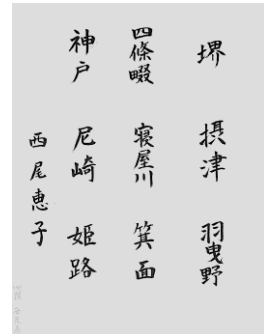 堺 摂津 羽曳野
四條畷 寝屋川 箕面
神戸 尼崎 姫路
西尾恵子